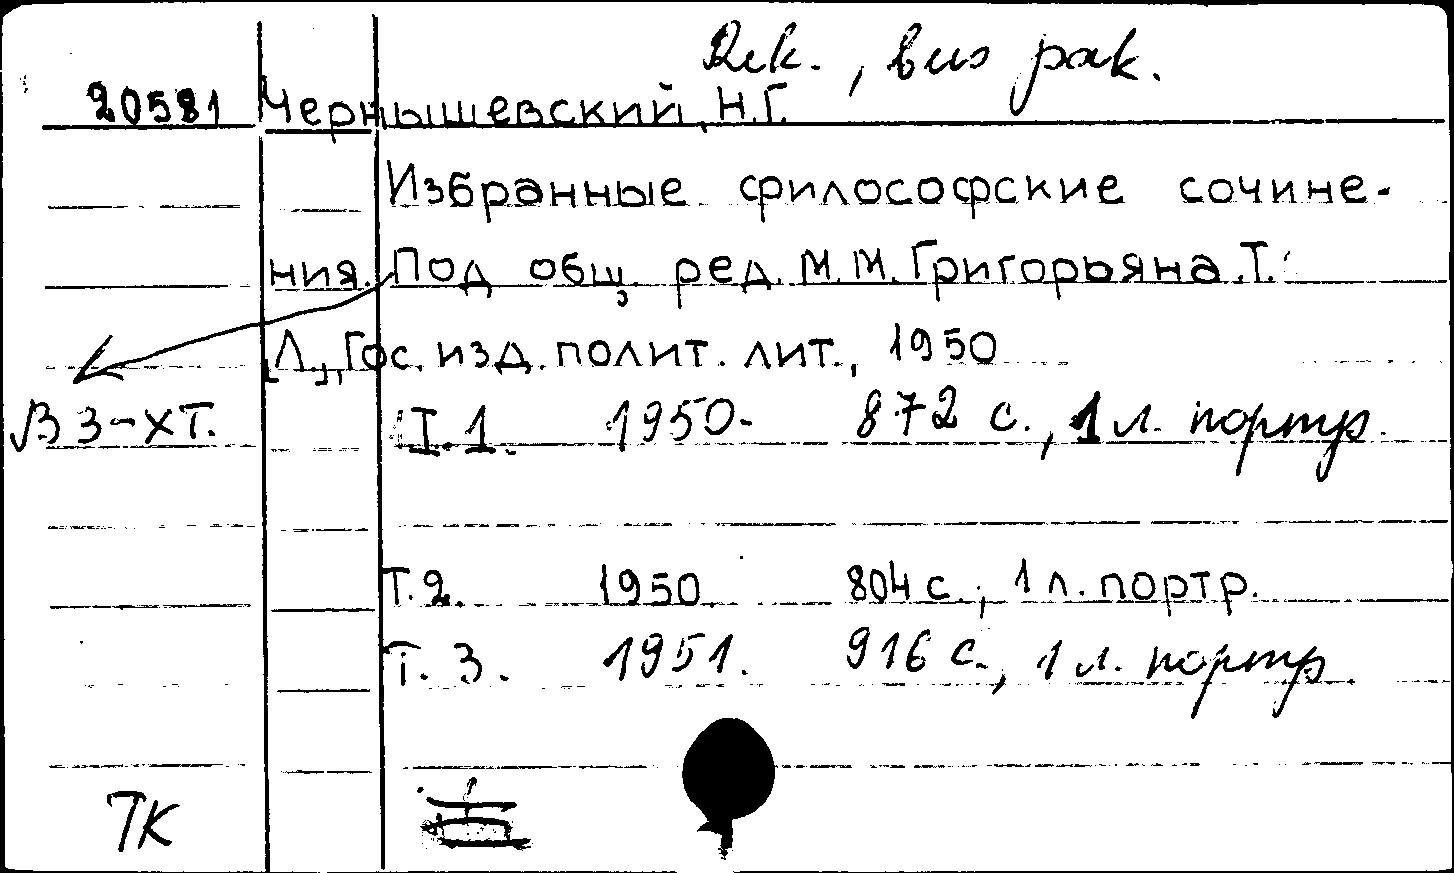 вип рак.
20581 Чернышевский, Н.Г.
Избранные философские сочине-
ния. Под общ. ред. М.М. Григорьяна. Т.
[Л.], Гос. изд. полит. лит., 1950
В 3-х т. Т. 1. 1950. 872 с., 1 л. портр.
Т. 2. 1950 804 с., 1 л. портр.
Т. 3. 1951. 916 с., 1 л. портр.
ТК